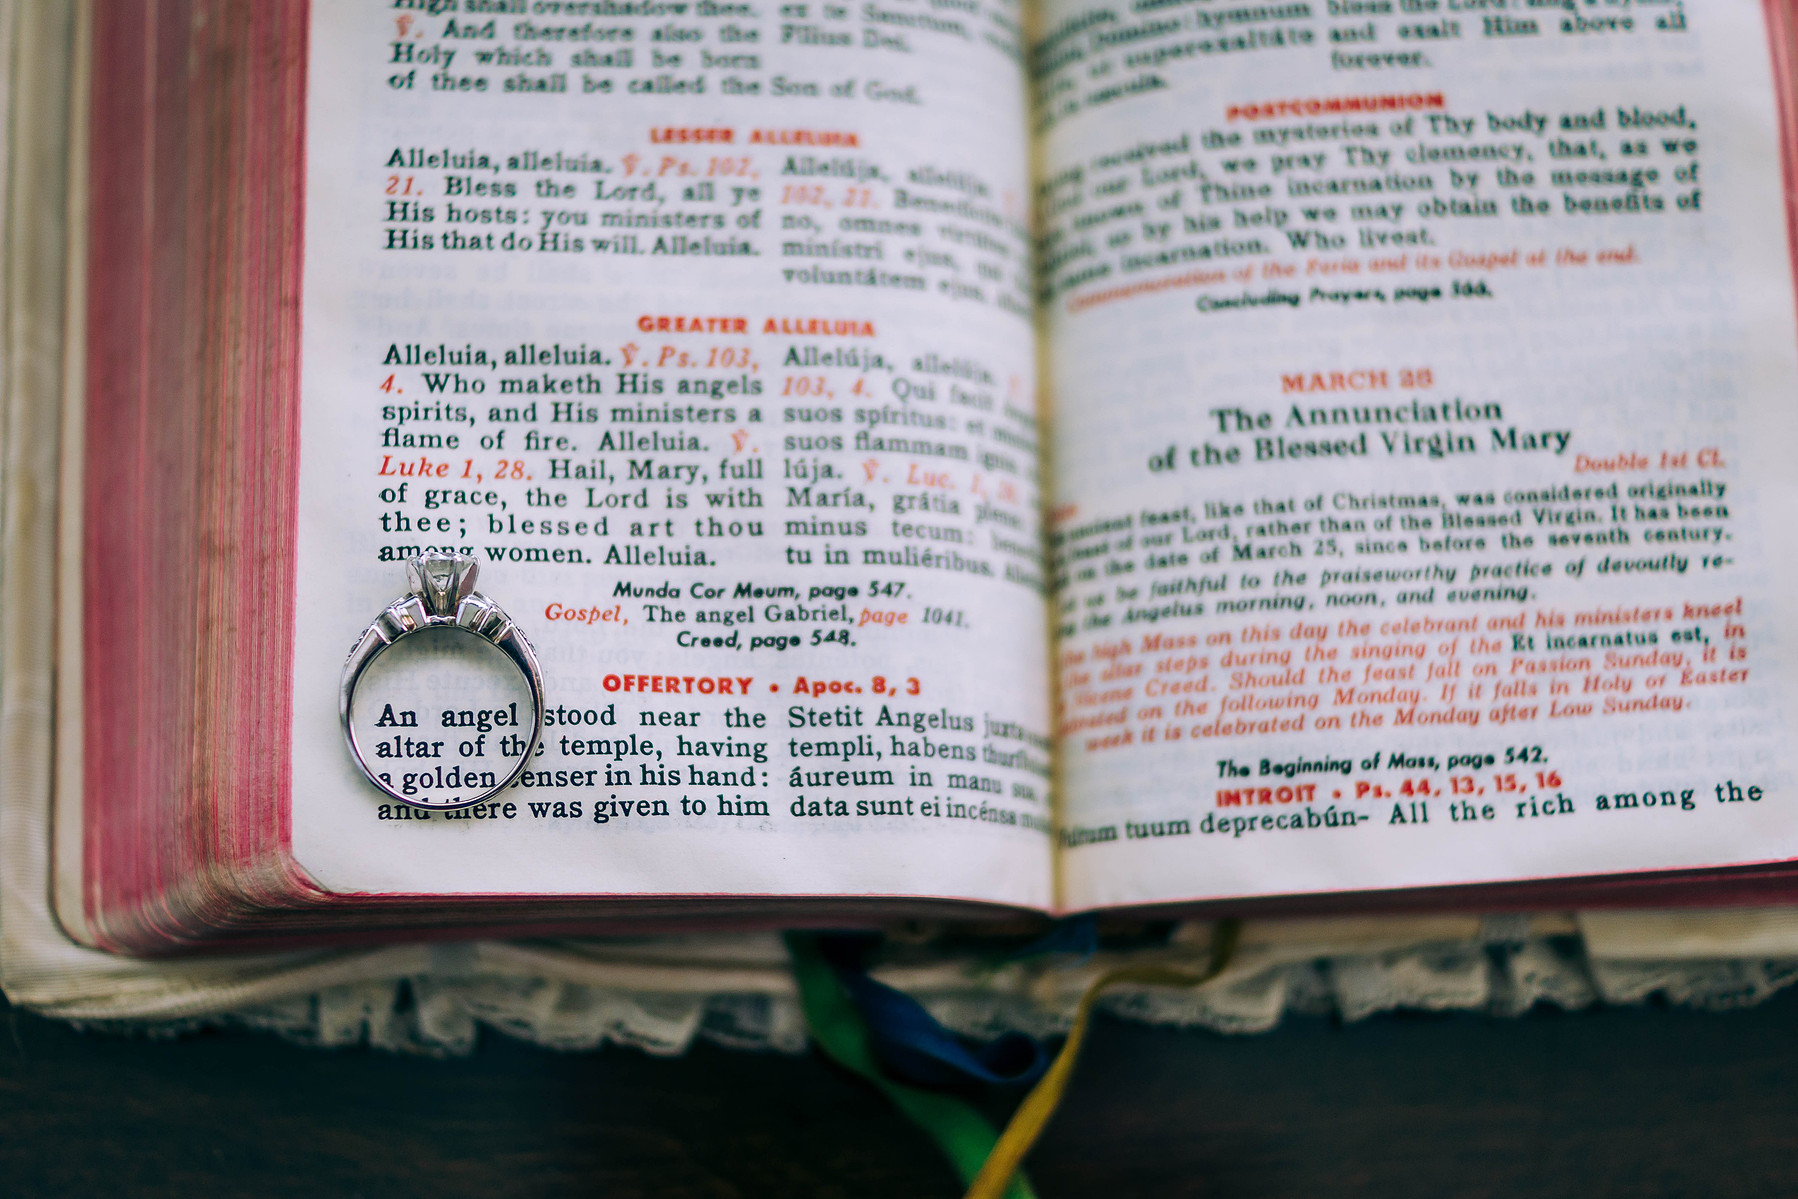 High shall overshadow thee.
℣. And therefore also the
Holy which shall be born
of thee shall be called the Son of God.
ex te Sanctum,
Fílius Dei.
LESSER ALLELUIA
Alleluia, alleluia. ℣. Ps. 102,
21. Bless the Lord, all ye
His hosts: you ministers of
His that do His will. Alleluia.
Allelúja, allelúja.
102, 21. Benedícite
no, omnes virtútes
minístri ejus, qui
voluntátem ejus.
GREATER ALLELUIA
Alleluia, alleluia. ℣. Ps. 103,
4. Who maketh His angels
spirits, and His ministers a
flame of fire. Alleluia. ℣.
Luke 1, 28. Hail, Mary, full
of grace, the Lord is with
thee; blessed art thou
among women. Alleluia.
Allelúja, allelúja.
103, 4. Qui facit
suos spíritus: et
suos flammam
lúja. ℣. Luc. 1,
María, grátia
minus tecum:
tu in muliéribus.
Munda Cor Meum, page 547.
Gospel, The angel Gabriel, page 1041.
Creed, page 548.
OFFERTORY • Apoc. 8, 3
An angel stood near the
altar of the temple, having
a golden censer in his hand:
and there was given to him
Stetit Angelus juxta
templi, habens
áureum in manu
data sunt ei incénsa
Dómino: hymnum bless the Lord:
et superexaltáte and exalt Him above all
forever.
POSTCOMMUNION
received the mysteries of Thy body and blood,
our Lord, we pray Thy clemency, that, as we
of Thine incarnation by the message of
so by his help we may obtain the benefits of
incarnation. Who livest.
Commemoration of the Feria and its Gospel at the end.
Concluding Prayers, page
MARCH 25
The Annunciation
of the Blessed Virgin Mary
Double 1st Cl.
ancient feast, like that of Christmas, was considered originally
feast of our Lord, rather than of the Blessed Virgin. It has been
on the date of March 25, since before the seventh century.
us be faithful to the praiseworthy practice of devoutly re-
the Angelus morning, noon, and evening.
high Mass on this day the celebrant and his ministers kneel
the altar steps during the singing of the Et incarnatus est, in
Nicene Creed. Should the feast fall on Passion Sunday, it is
on the following Monday. If it falls in Holy or Easter
week it is celebrated on the Monday after Low Sunday.
The Beginning of Mass, page 542.
INTROIT • Ps. 44, 13, 15, 16
tuum deprecabún- All the rich among the